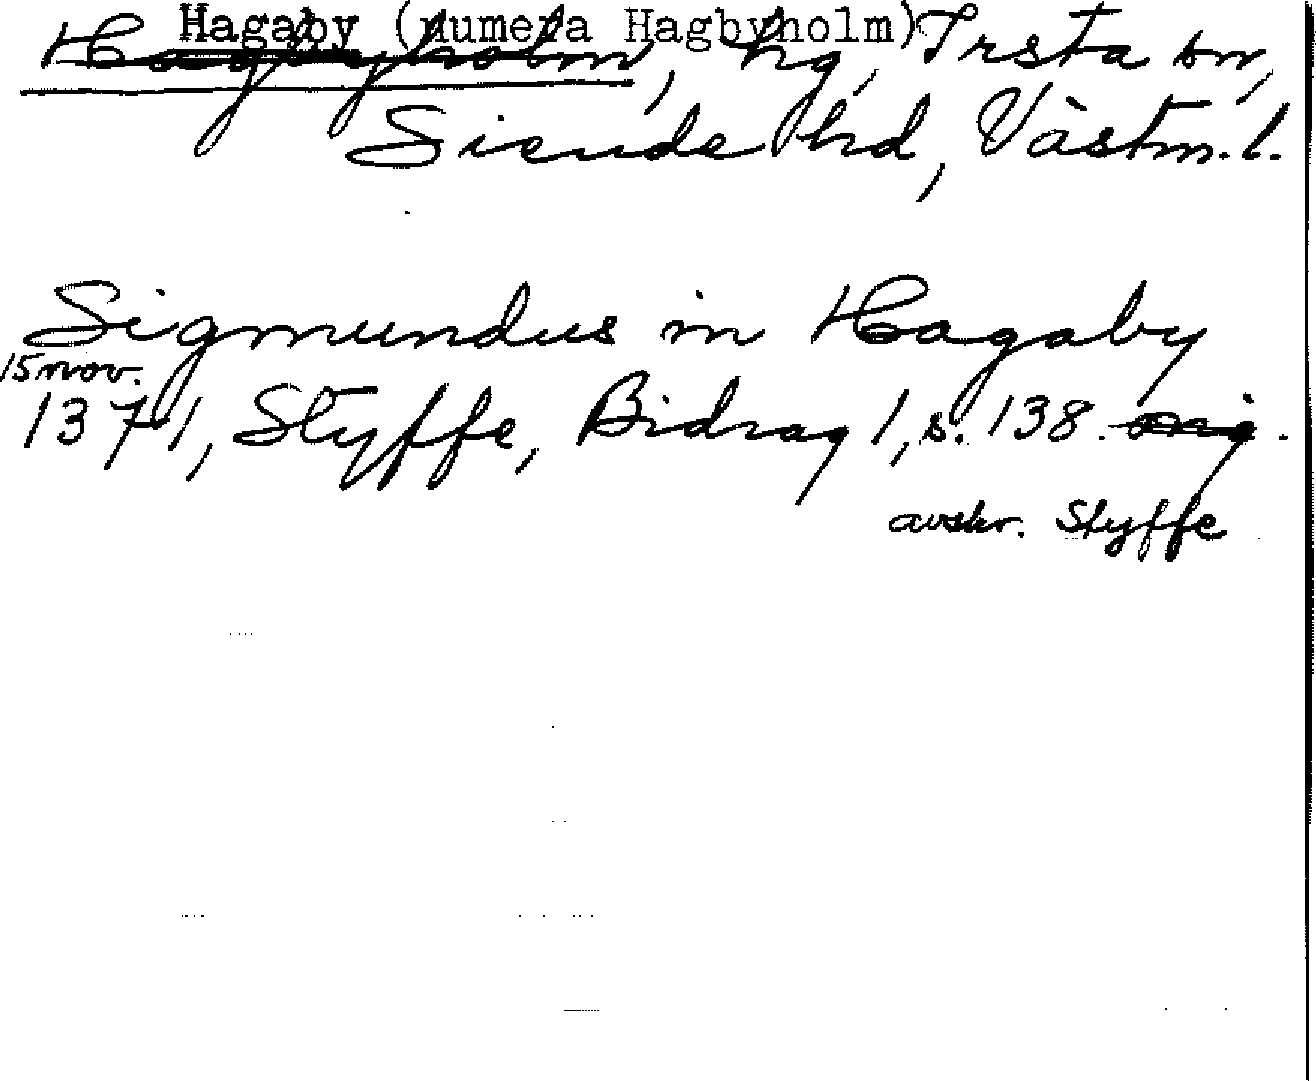 Hagaby (numera Hagbyholm)
Hagbyholm, hg, Irsta sn,
Siende hd, Västm. l.
Sigmundus in Hagaby
15 nov.
1371, Styffe, Bidrag 1, s. 138. orig.
avskr. Styffe